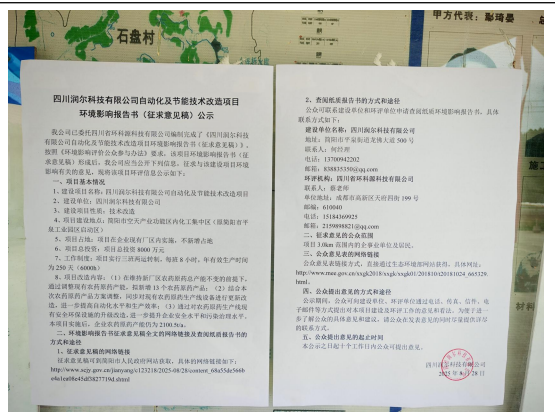 石盘村
甲方代表：彭琦晏
四川润尔科技有限公司自动化及节能技术改造项目
环境影响报告书（征求意见稿）公示
我公司已委托四川省环科源科技有限公司编制完成了《四川润尔科技
有限公司自动化及节能技术改造项目环境影响报告书（征求意见稿）》，
按照《环境影响评价公众参与办法》要求，该项目环境影响报告书（征
求意见稿）形成后，我公司应当公开下列信息，征求与该建设项目环境
影响有关的意见，现将该项目环评信息公示如下：
一、项目基本情况
1、建设项目名称：四川润尔科技有限公司自动化及节能技术改造项目
2、建设单位：四川润尔科技有限公司
3、建设项目性质：技术改造
4、项目建设地点：简阳市空天产业功能区内化工集中区（原简阳市平
泉工业园区启动区）
5、项目占地：项目在企业现有厂区内实施，不新增占地
6、项目总投资：项目总投资 8000 万元
7、工作制度：项目实行三班两运转，每班 8 小时，年有效生产时间
为 250 天（6000h）
8、项目改造内容：（1）在维持新厂区农药原药总产能不变的前提下，
通过调整现有农药原药产能，拟新增 13 个农药原药产品；（2）结合本
次农药原药产品方案调整，同步对现有农药原药生产线设备进行更新改
造，进一步提高自动化水平和生产效率；（3）通过对农药原药生产线现
有安全环保设施的升级改造，进一步提升企业安全水平和污染治理水平。
本项目实施后，企业农药原药产能仍为 2100.5t/a。
二、环境影响报告书征求意见稿全文的网络链接及查阅纸质报告书的
方式和途径
1、征求意见稿的网络链接
征求意见稿可到简阳市人民政府网站获取，具体的网络链接如下：
2、查阅纸质报告书的方式和途径
公众可联系建设单位和环评单位申请查阅纸质环境影响报告书，具体
联系方式如下：
建设单位名称：四川润尔科技有限公司
地址：简阳市平泉街道龙佛大道 500 号
联系人：何经理
电话：13700942202
邮箱：838835350@qq.com
环评机构名称：四川省环科源科技有限公司
联系人：蔡老师
单位地址：成都市高新区天府四街 199 号
邮编：610040
电话：15184369925
邮箱：2159898821@qq.com
二、征求意见的公众范围
项目 3.0km 范围内的企事业单位及居民。
三、公众意见表的网络链接
公众意见表链接方式，直接通过生态环境部网站获得，具体网址：
http://www.mee.gov.cn/xxgk2018/xxgk/xxgk01/201810/t20181024_665329.
html。
四、公众提出意见的方式和途径
公示期间，公众可向建设单位、环评单位通过电话、传真、信件、电
子邮件等方式提出对本项目建设及环评工作的意见和看法。为便于进一
步了解公众的具体意见和建议，请公众在发表意见的同时尽量提供详尽
的联系方式。
五、公众提出意见的起止时间
本公示之日起十个工作日内公众可提出意见。
四川润尔科技有限公司
2025 年 8 月 28 日